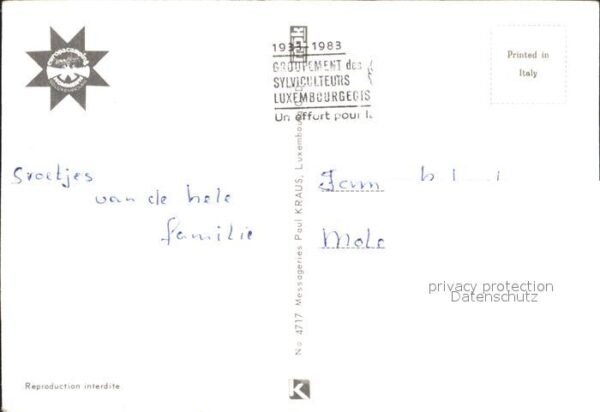 1933-1983
GROUPEMENT des
SYLVICULTEURS
LUXEMBOURGEOIS
Un effort pour l
Printed in
Italy
Groetjes
van de hele
familie
Fam
Mole
privacy protection
Datenschutz
No 4717 Messageries Paul KRAUS, Luxembourg
Reproduction interdite
K